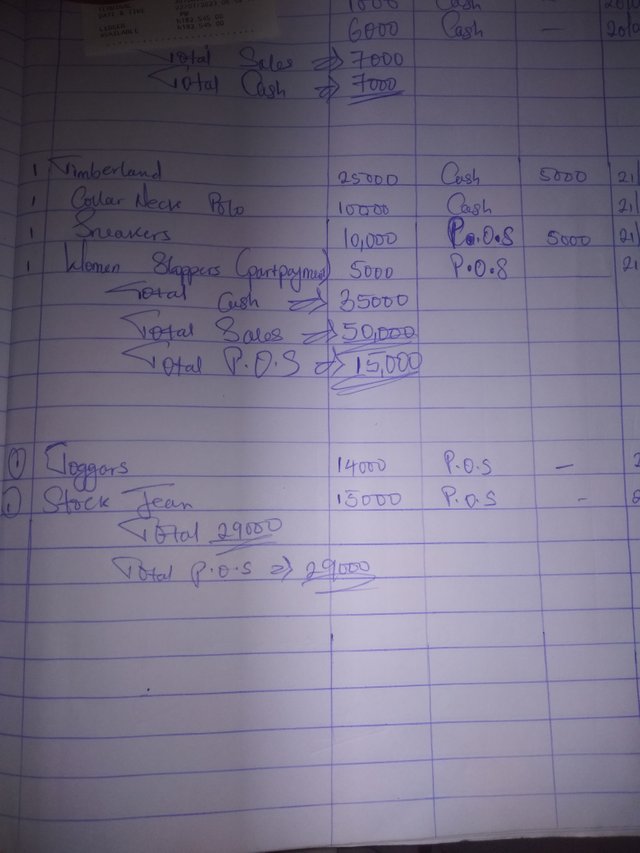 1000 Cash
6000 Cash —
Total Sales ⇒ 7000
Total Cash ⇒ 7000
1 Timberland 25000 Cash 5000 21/
1 Collar Neck Polo 10000 Cash 21/
1 Sneakers 10,000 P.O.S 5000 21/
1 Women Sloppers (partpayment) 5000 P.O.S 21
Total Cash ⇒ 35000
Total Sales ⇒ 50,000
Total P.O.S ⇒ 15,000
1 Joggars 14000 P.O.S — 2
1 Stock Jean 15000 P.O.S - 2
Total 29000
Total P.O.S ⇒ 29000